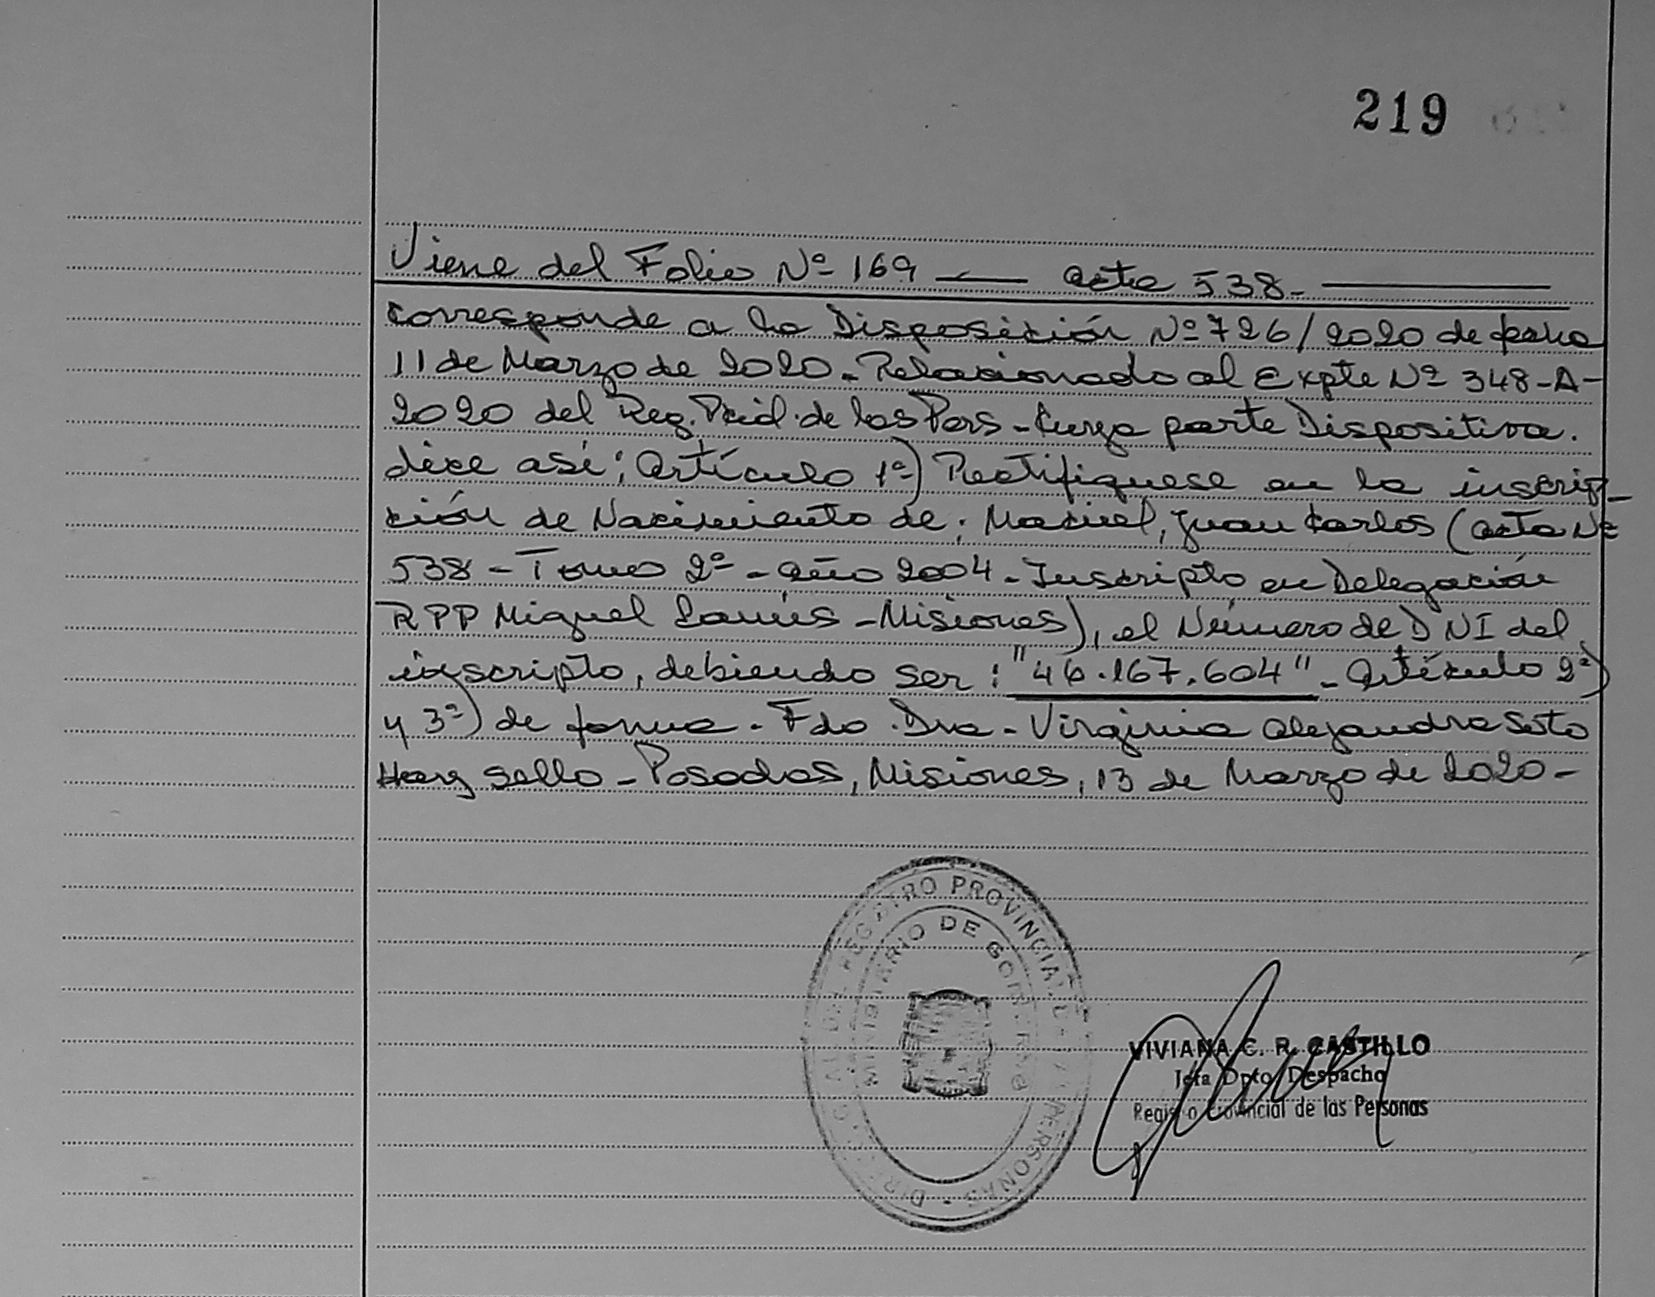 219
Viene del Folio Nº 169 — Acta 538. —
Corresponde a la Disposición Nº 726/2020 de fecha
11 de Marzo de 2020 - Relacionado al Expte Nº 348-A-
2020 del Reg. Pcial. de las Pers - Cuya parte Dispositiva.
dice así: Artículo 1º) Rectifíquese en la inscrip-
ción de Nacimiento de: Maciel, Juan Carlos (Acta Nº
538 - Tomo 2º - Año 2004 - Inscripto en Delegación
RPP Miguel Lanús - Misiones), el Número de DNI del
inscripto, debiendo ser: "46.167.604" - Artículo 2º)
y 3º) de forma - Fdo. Dra - Virginia Alejandra Soto
Hay sello - Posadas, Misiones, 13 de Marzo de 2020 -
REGISTRO PROVINCIAL DE LAS PERSONAS
MINISTERIO DE GOBIERNO
VIVIANA C. R. CASTILLO
Jefa Dpto. Despacho
Registro Provincial de las Personas